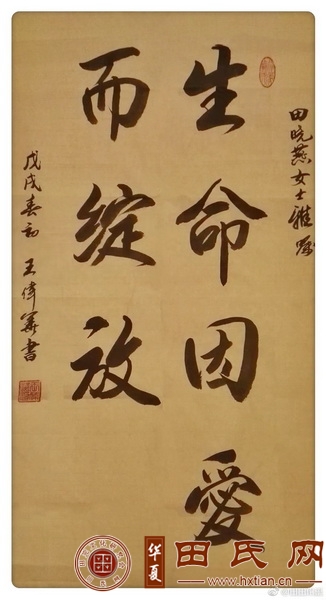 田晓燕女士雅属
生命因愛
而綻放
戊戌春初 王偉華書
华夏
田氏网
www.hxtian.cn